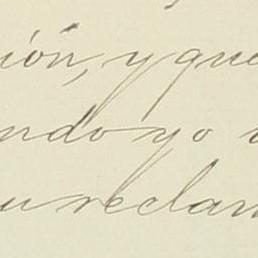 ión, y que
ndo yo
u reclam